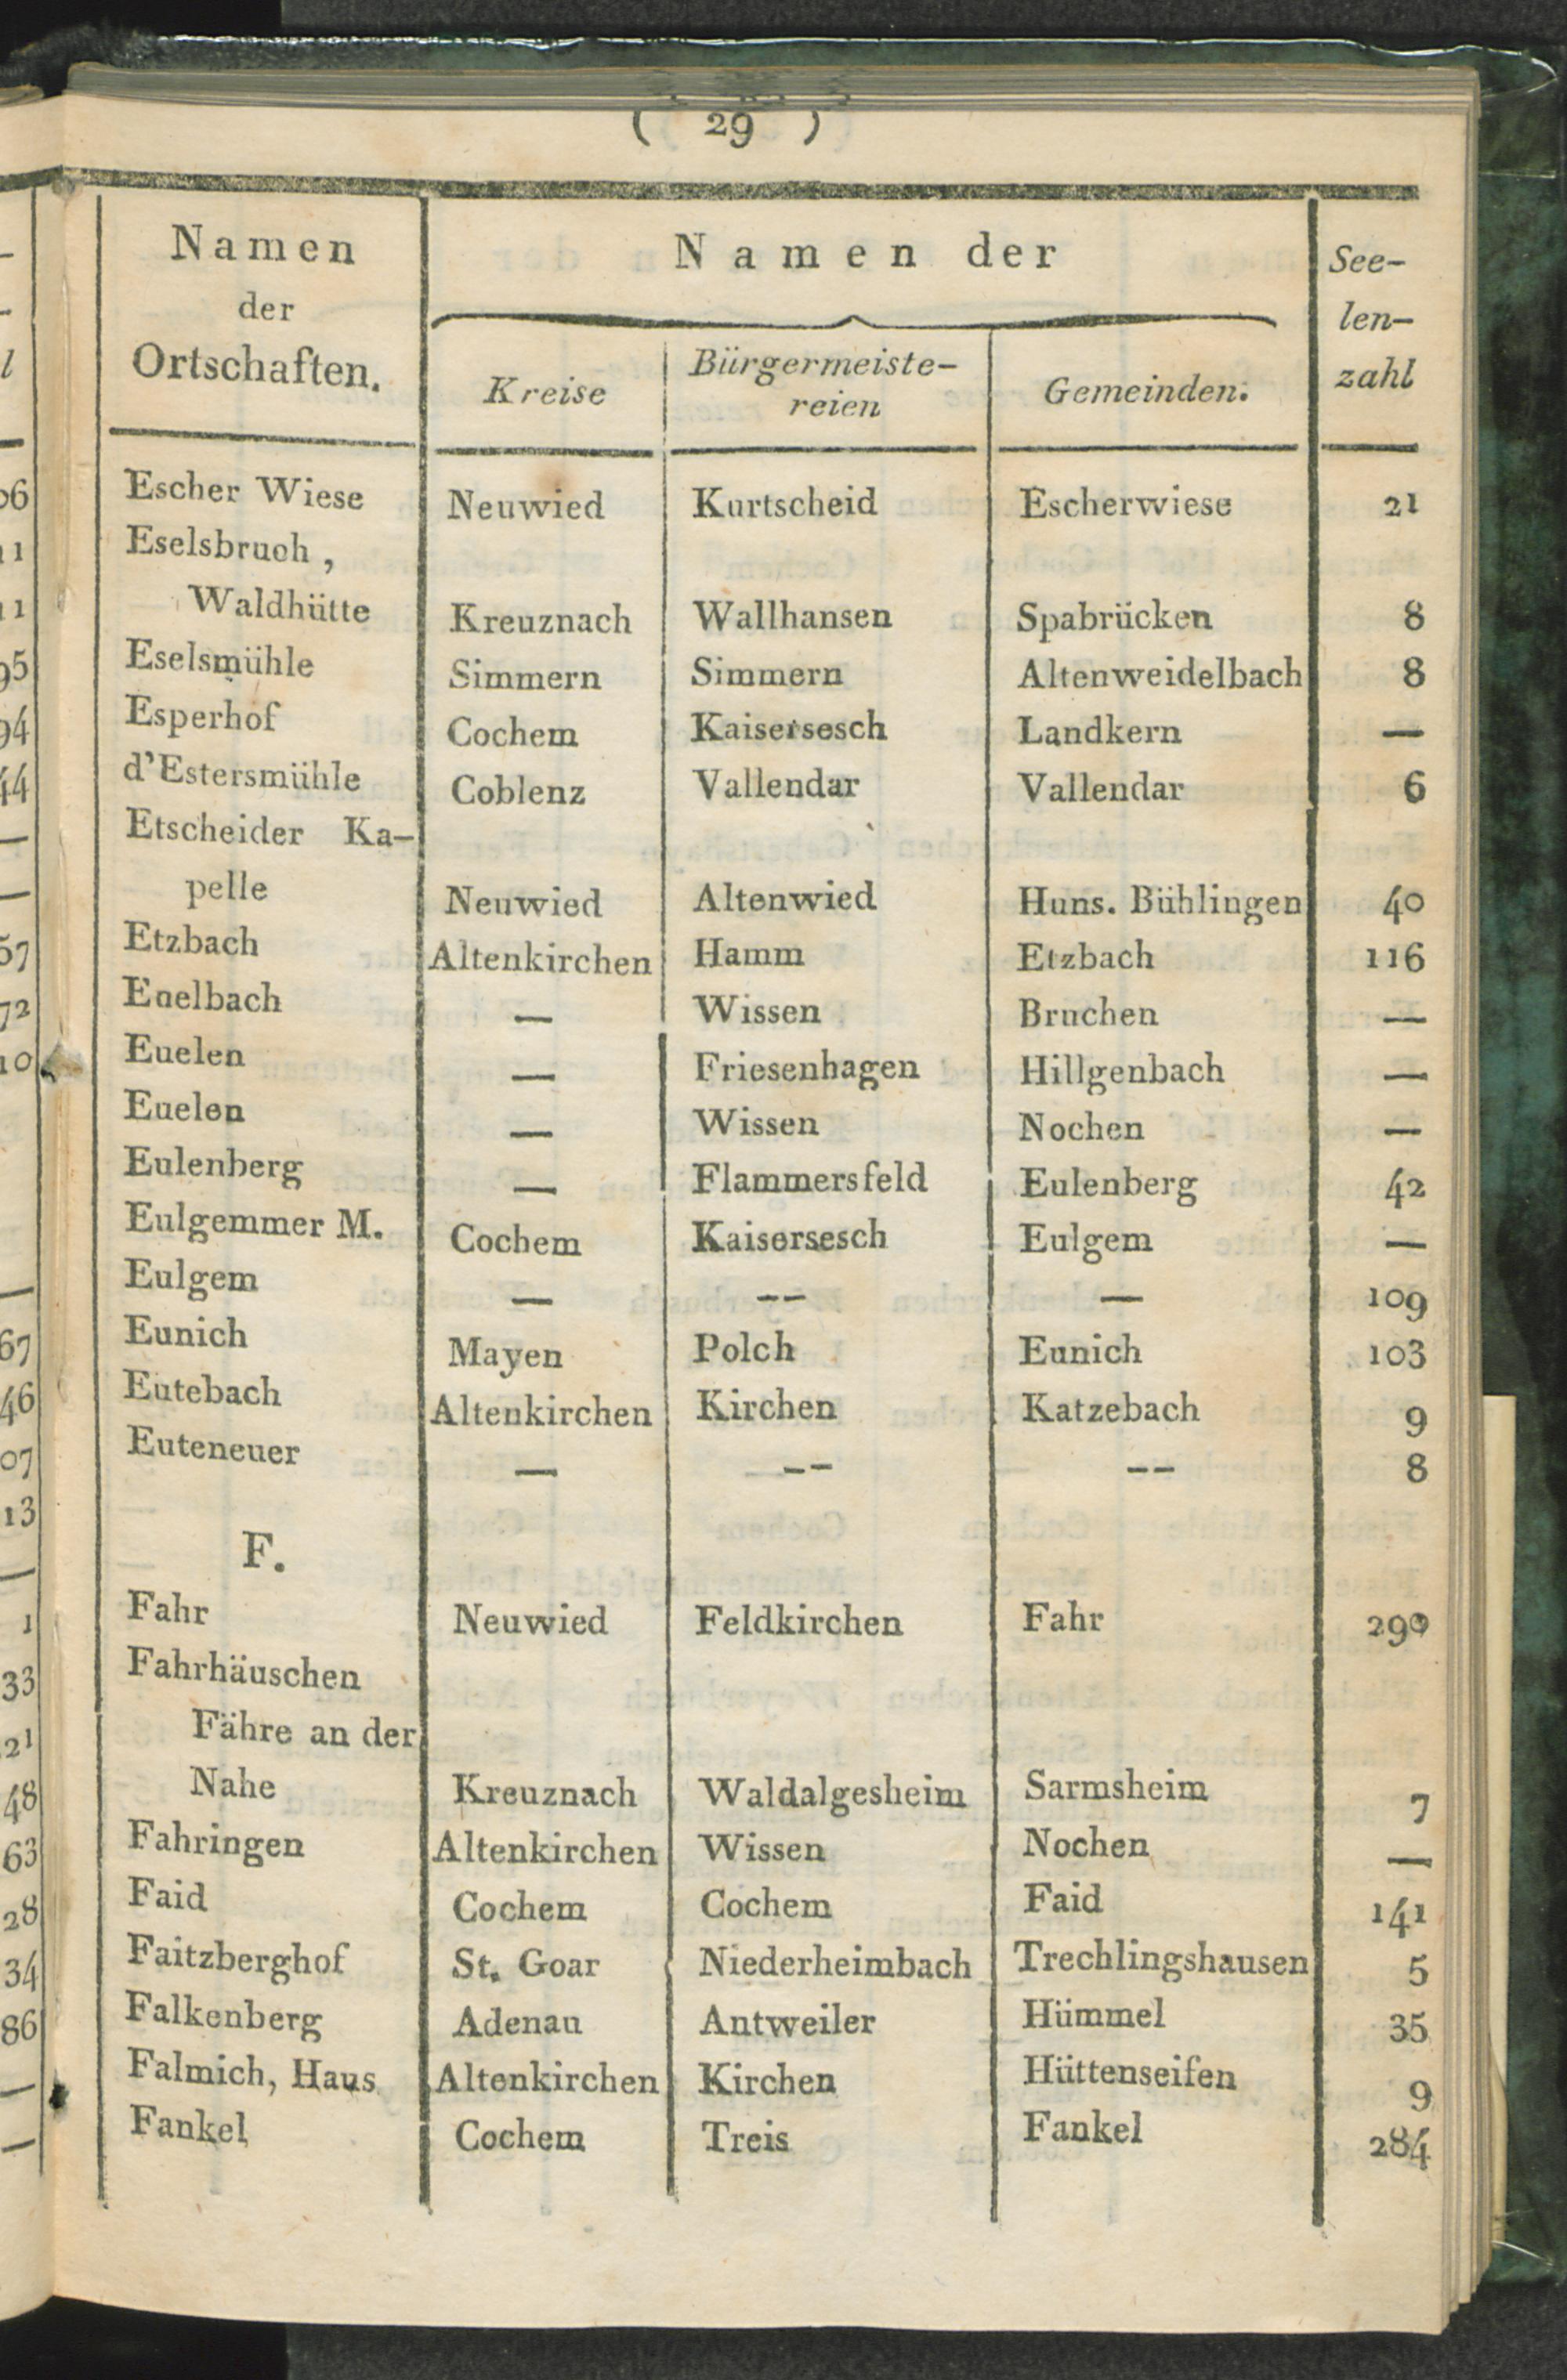 ( 29 )
Namen der Ortschaften. | Namen der | See-
Kreise | Bürgermeiste- | Gemeinden. | len-
reien | zahl
Escher Wiese | Neuwied | Kurtscheid | Escherwiese | 21
Eselsbruch ,
Waldhütte | Kreuznach | Wallhansen | Spabrücken | 8
Eselsmühle | Simmern | Simmern | Altenweidelbach | 8
Esperhof | Cochem | Kaisersesch | Landkern | —
d'Estersmühle | Coblenz | Vallendar | Vallendar | 6
Etscheider Ka-
pelle | Neuwied | Altenwied | Huns. Bühlingen | 40
Etzbach | Altenkirchen | Hamm | Etzbach | 116
Euelbach | — | Wissen | Bruchen | —
Euelen | — | Friesenhagen | Hillgenbach | —
Euelen | — | Wissen | Nochen | —
Eulenberg | — | Flammersfeld | Eulenberg | 42
Eulgemmer M. | Cochem | Kaisersesch | Eulgem | —
Eulgem | — | -- | — | 109
Eunich | Mayen | Polch | Eunich | 103
Eutebach | Altenkirchen | Kirchen | Katzebach | 9
Euteneuer | — | -- | -- | 8
F.
Fahr | Neuwied | Feldkirchen | Fahr | 290
Fahrhäuschen
Fähre an der
Nahe | Kreuznach | Waldalgesheim | Sarmsheim | 7
Fahringen | Altenkirchen | Wissen | Nochen | —
Faid | Cochem | Cochem | Faid | 141
Faitzberghof | St. Goar | Niederheimbach | Trechlingshausen | 5
Falkenberg | Adenau | Antweiler | Hümmel | 35
Falmich, Haus | Altenkirchen | Kirchen | Hüttenseifen | 9
Fankel | Cochem | Treis | Fankel | 284